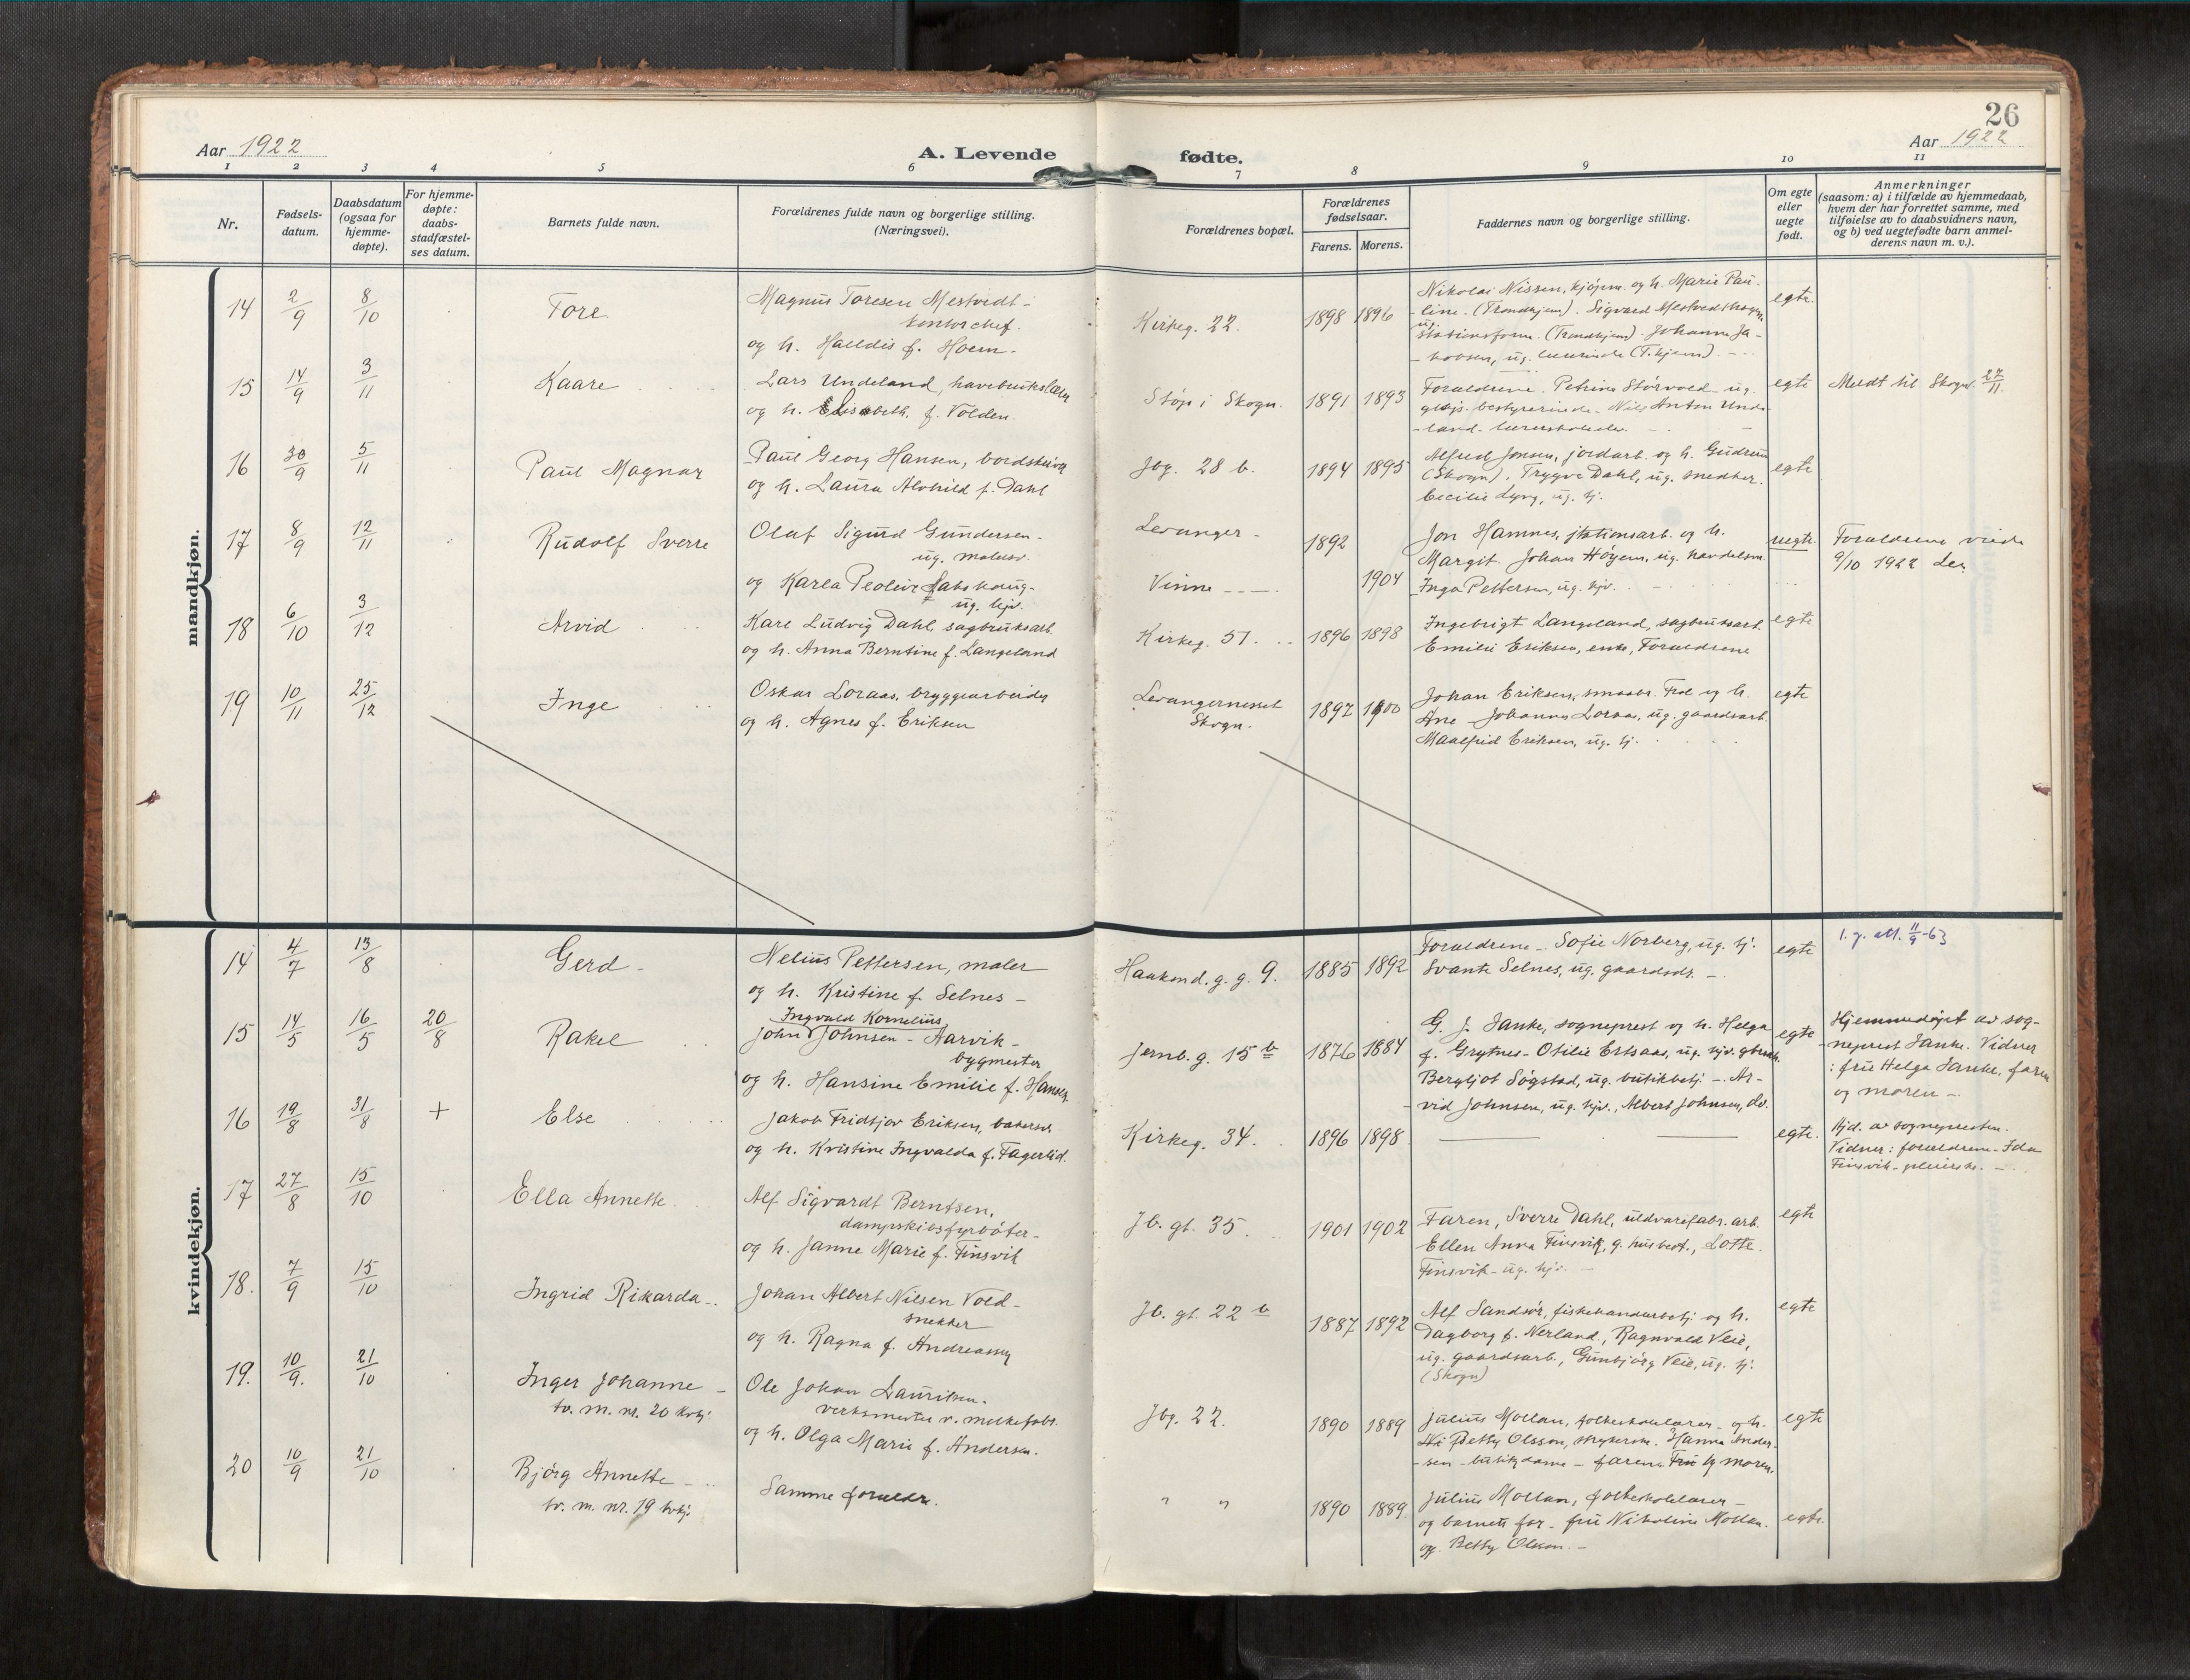 26
Aar 1922
A. Levende fødte.
Aar 1922
1 2 3 4 5 6 7 8 9 10 11
Nr.
Fødsels-
datum.
Daabsdatum
(ogsaa for
hjemme-
døpte).
For hjemme-
døpte:
daabs-
stadfæstel-
ses datum.
Barnets fulde navn.
Forældrenes fulde navn og borgerlige stilling.
(Næringsvei).
Forældrenes bopæl.
Forældrenes
fødselsaar.
Farens. Morens.
Faddernes navn og borgerlige stilling.
Om egte
eller
uegte
født.
Anmerkninger
(saasom: a) i tilfælde av hjemmedaab,
hvem der har forrettet samme, med
tilføielse av to daabsvidners navn,
og b) ved uegtefødte barn anmel-
derens navn m. v.).
mandkjøn.
14 2/9 8/10 Tore
Magnus Toresen Mestvedt -
kontorchef.
og h. Halldis f. Hoem -
Kirkeg. 22. 1898 1896
Nikolai Nissen, kjøpm. og h. Marie Pau-
line. (Trondhjem). Sigvard
(Trondhjem). Johanna Ja-
kobsen, ug. (T.hjem).
egte
15 14/9 3/11 Kaare
Lars Undeland, havebrukslærer
og h. Elisabeth f. Volden.
Støp i Skogn. 1891 1893
Forældrene. Petrine Størvold ug.
bestyrerinde - Nils Anton Unde-
land
egte
Meldt til Skogn 27/11
16 30/9 5/11 Paul Magnar
Paul Georg Hansen,
og h. Laura Alvhild f. Dahl
Jbg. 28 b. 1894 1895
Alfred Jonsen, jordarb. og h. Gudrun
(Skogn). Trygve Dahl, ug. snedker.
Cecilie Lyng, ug. tj.
egte
17 8/9 12/11 Rudolf Sverre
Olaf Sigurd Gundersen -
ug. malersv.
og Karla Peolive
ug. hjv.
Levanger - 1892
Vinne 1904
Jon Hamnes, stationsarb. og h.
Margit. Johan Høyem, ug. handelsm.
Inga Pettersen, ug. hjv.
uegte
Forældrene viede
9/10 1922 Lev.
18 6/10 3/12 Arvid
Karl Ludvig Dahl, sagbruksarb.
og h. Anna Berntine f. Langeland
Kirkeg. 51. 1896 1898
Ingebrigt Langeland, sagbruksarb.
Emilie Eriksen, enke, Forældrene
egte
19 10/11 25/12 Inge
Oskar Loraas, bryggearbeider
og h. Agnes f. Eriksen
Levangernesset
Skogn. 1897 1900
Johan Eriksen, smaabr. Frol og h.
Ane - Johannes Loraas, ug. gaardsarb.
Maalfrid Eriksen, ug. tj.
egte
kvindekjøn.
14 4/7 13/8 Gerd -
Nelius Pettersen, maler
og h. Kristine f. Selnes -
Haakon d. g. g. 9. 1885 1892
Forældrene - Sofie Norberg, ug. tj.
Svante Selnes, ug. gaardsdr. -
egte
1. g. att. 11/9-63
15 14/5 16/5 20/8 Rakel
Ingvald Kornelius
John Johnsen - Aarvik -
bygmester
og h. Hansine Emilie f. Hansen
Jernb. g. 15 b 1876 1884
G. J. Janke, sogneprest og h. Helga
f. Grytnes - Otilie Ertsaas, ug. hjv.
Bergljot Søgstad, ug. butikbetj. - Ar-
vid Johnsen, ug. hjv., Albert Johnsen, do.
egte
Hjemmedøpt av sog-
neprest Janke. Vidner
: fru Helga Janke, faren
og moren -
16 19/8 31/8 + Else
Jakob Fridtjov Eriksen, bakersv.
og h. Kristine Ingvalda f. Fagerlid.
Kirkeg. 34. 1896 1898
egte.
Hjd. av sognepresten.
Vidner: forældrene - Ida
Finsvik - pleierske. -
17 27/8 15/10 Ella Annette
Alf Sigvardt Berntsen,
dampskibsfyrbøter -
og h. Janne Marie f. Finsvik
Jb. gt. 35 1901 1902
Faren, Sverre Dahl, uldvarefabr. arb.
Ellen Anna Finsvik, g. husbest., Lotte
Finsvik - ug. hjv. -
egte
18. 7/9 15/10 Ingrid Rikarda -
Johan Albert Nilsen Vold -
snekker
og h. Ragna f. Andreassen
Jb. gt. 22 b 1887 1892
Alf Sandsør, og h.
Dagborg f. Nerland, Ragnvald Veie,
ug. gaardsarb., Gunbjørg Veie, ug. tj.
(Skogn)
egte
19. 10/9. 21/10 Inger Johanne -
tv. m. nr. 20 kvkj.
Ole Johan Lauritsen.
verksmester v. melkefabr.
og h. Olga Marie f. Andersen.
Jbg. 22. 1890 1889
Julius Mollan, folkeskolelærer - og h.
Betty Olsson, strykerske. Hanna Ander-
sen - butikdame - faren og moren.
egte
20 10/9 21/10 Bjørg Annette -
tv. m. nr. 19 kvkj.
Samme forældre.
" " 1890 1889
Julius Mollan, folkeskolelærer -
og barnets far - fru Nikoline Mollan.
og Betty Olsson. -
egte.